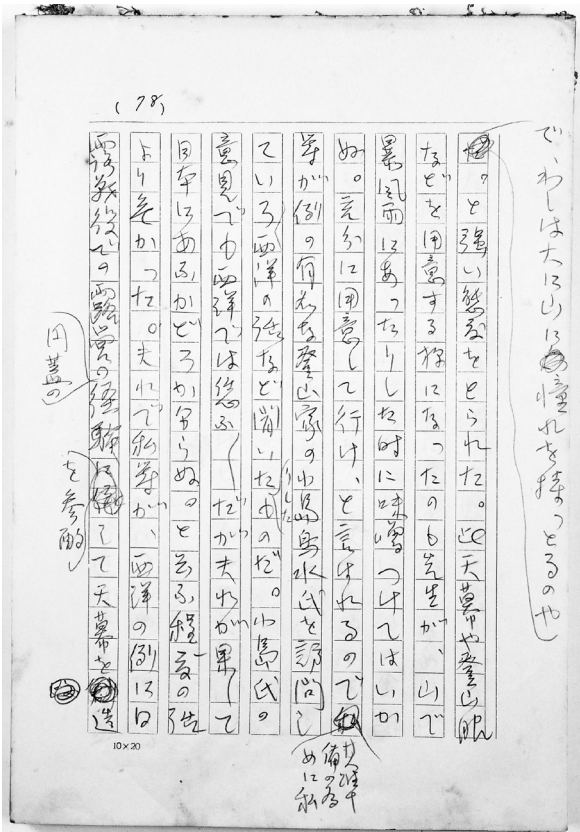 (78)
で、わしは大に山に憧れを持つとるのや
。と強い態度をとられた。此天幕や登山服
などを用意する様になったのも先生が、山で
暴風雨にあったりした時に味噌つけてはいか
ぬ。充分に用意して行け、と言はれるので
其準
備の為
めに私
等が例の有名な登山家の小島烏水氏を訪問し
ていろ西洋の話など聞いたものだ。小島氏の
うした
意見でも西洋では恁ふ──だが夫れが果して
日本にあふかどうか分らぬ。と云ふ程度の話
より無かった。夫れで私等が、西洋の例には
露戦役での露営の経験して天幕を造
円蓋の
を参酌
10×20